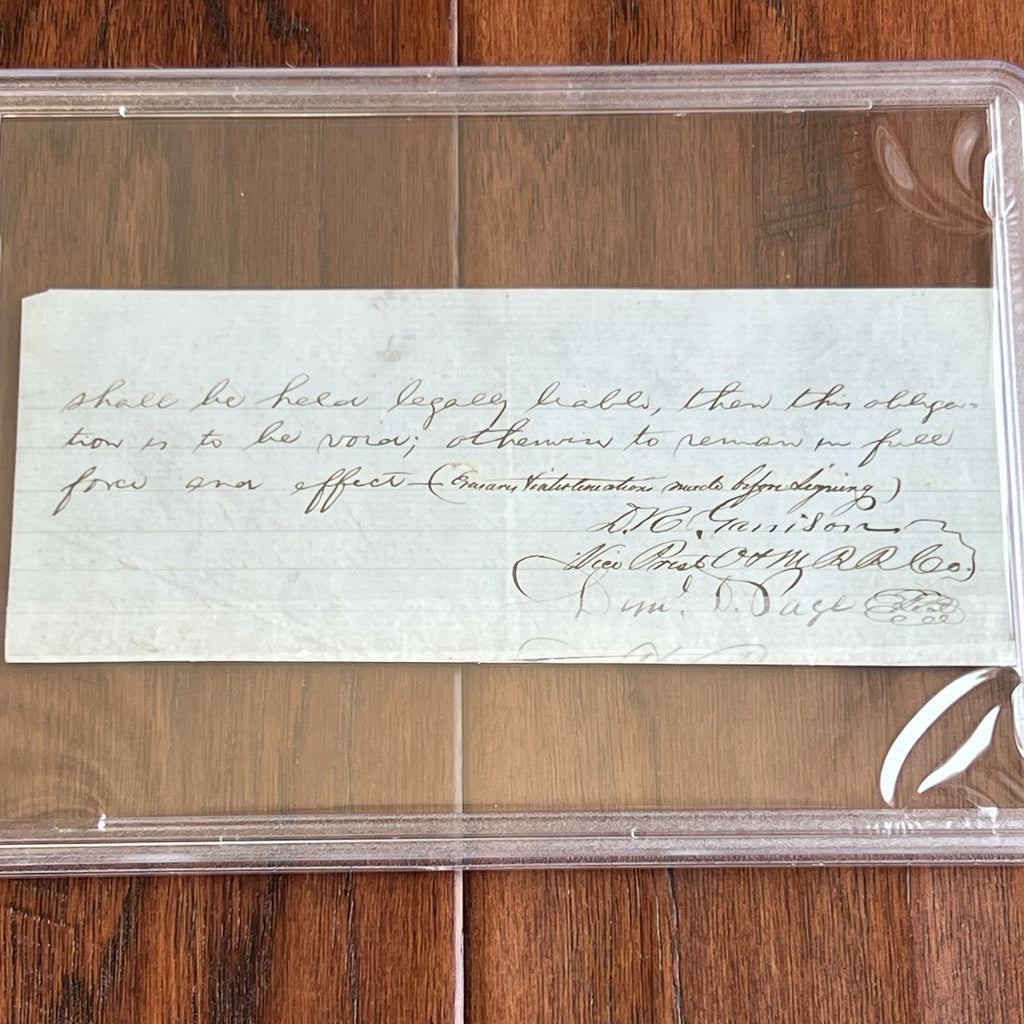 shall be held legally liable, then this obliga-
tion is to be void; otherwise to remain in full
force and effect - (Erasures & interlineations made before signing)
D. R. Garrison
Vice Prest O & M R R Co.
Danl. D. Page